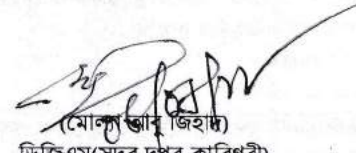 (মোল্লা আবু জিহাদ)
ডিজিএম(সদর দপ্তর কারিগরী)